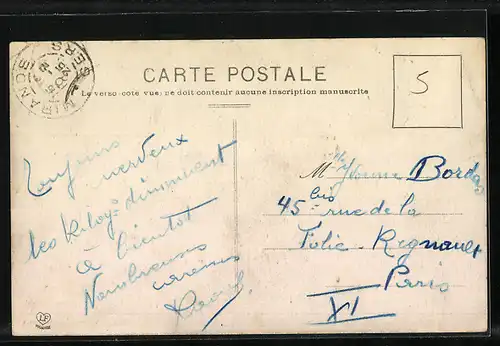 MIRANDE
GERS
CARTE POSTALE
Le verso-côté vue, ne doit contenir aucune inscription manuscrite
5
Toujours
nerveux
les Kilogs diminuent
à bientôt
Nombreuses
Mlle Yvonne Bordas
45 bis rue de la
Folie Regnault
Paris
XI